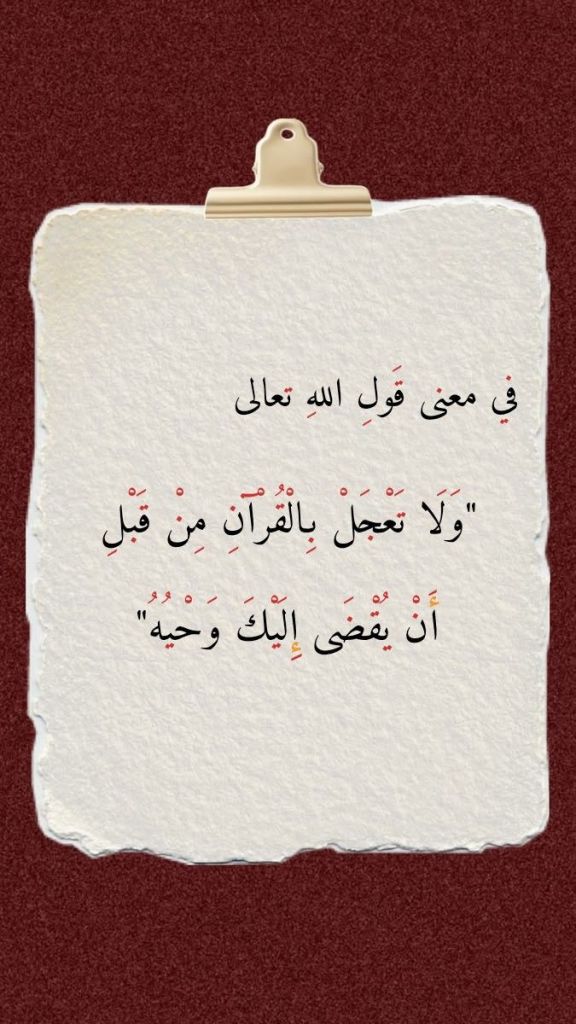 في معنى قَولِ اللهِ تعالى
"وَلَا تَعْجَلْ بِالْقُرْآنِ مِنْ قَبْلِ
أَنْ يُقْضَى إِلَيْكَ وَحْيُهُ"